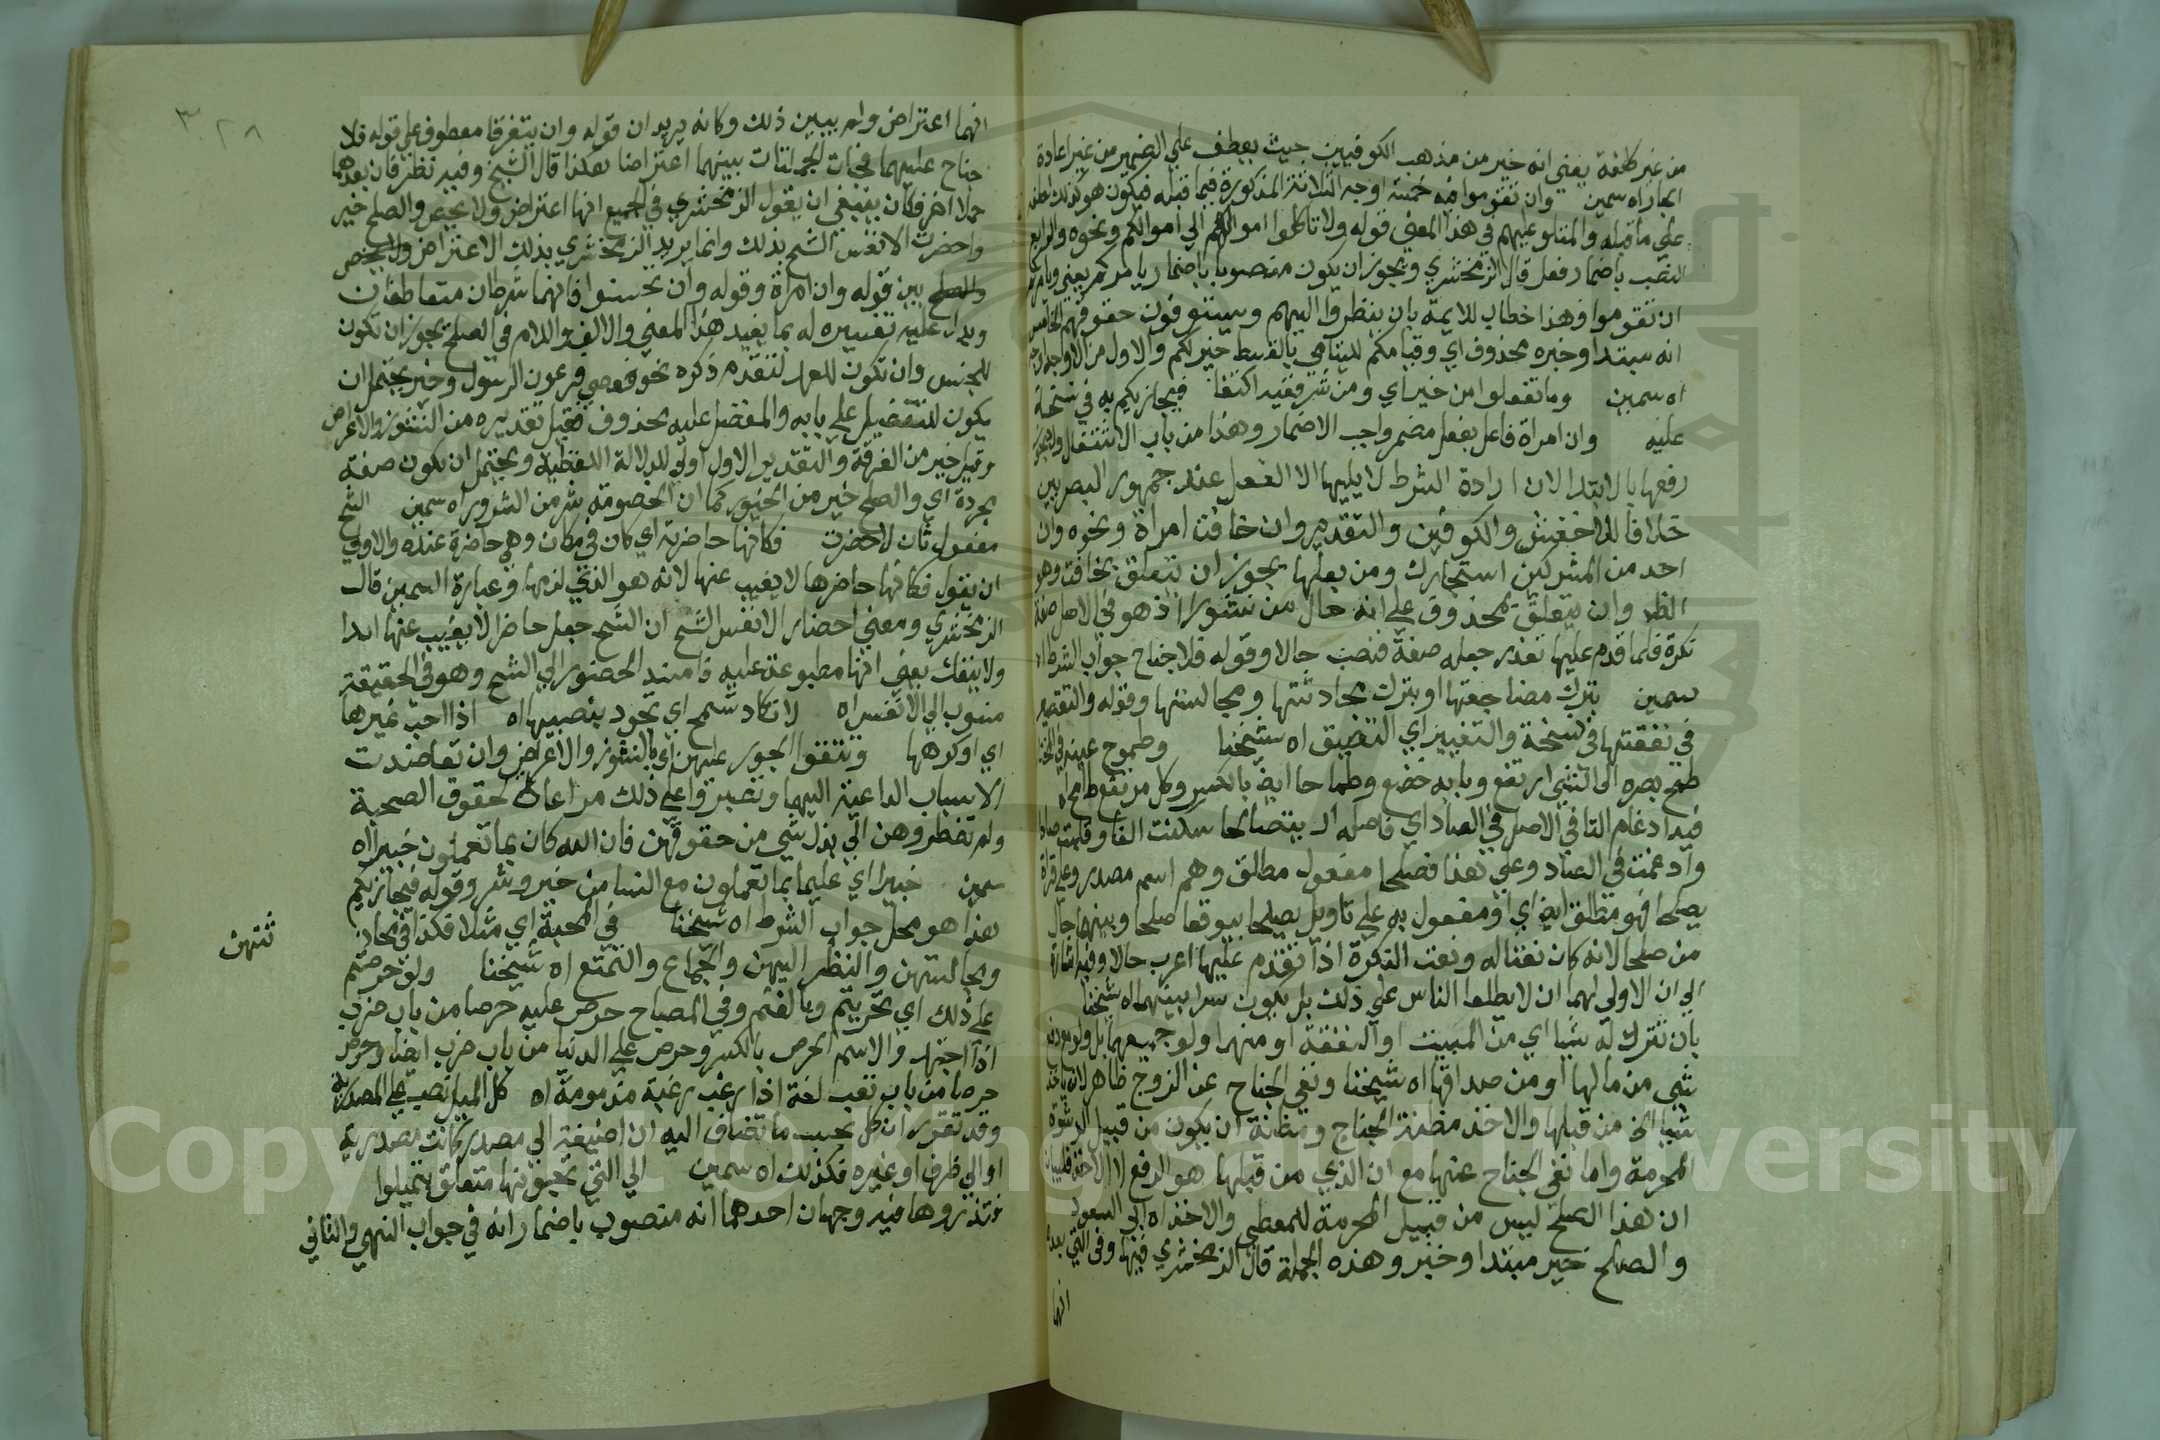 من غير كلفة يعني انه خير من مذهب الكوفيين حيث يعطف علي الضمير من غير اعادة
الجار اه سمين وان تقوموا فيه خمسة اوجه الثلاثة المذكورة فيما قبله فيكون هو كذلك لعطفه
علي ما قبله والمتلو عليهم في هذا المعني قوله ولا تاكلوا اموالهم الي اموالكم ونحوه والرابع
النصب باضمار فعل قال الزمخشري ويجوز ان يكون منصوبا باضمار يامركم بمعني ويامركم
ان تقوموا وهذا خطاب للايمة بان ينظروا اليهم ويستوفون حقوقهم الخامس
انه مبتدا وخبره محذوف اي وقيامكم لليتامي بالقسط خير لكم والاول من الاوجه اوجه
اه سمين وما تفعلوا من خير اي ومن شر ففيه اكتفا فيجازيكم به في نسخة
عليه وان امراة فاعل بفعل مضمر واجب الاضمار وهذا من باب الاشتغال ولا يجوز
رفعها بالابتدا لان اداة الشرط لا يليها الا الفعل عند جمهور البصريين
خلافا للاخفش والكوفيين والتقدير وان خافت امراة ونحوه وان
احد من المشركين استجارك ومن بعلها يجوز ان يتعلق بخافت وهو
الظاهر وان يتعلق بمحذوف علي انه حال من نشوزا اذ هو في الاصل صفة
نكرة فلما قدم عليها تعذر جعله صفة فنصب حالا وقوله فلا جناح جواب الشرط اه
سمين بترك مضاجعتها او بترك محادثتها ومجالستها وقوله والتقصير
في نفقتها في نسخة والتقتير اي التضييق اه شيخنا وطموح عينه في المختار
طمح بصره الي الشي ارتفع وبابه خضع وطماحا ايضا بالكسر وكل مرتفع طامح اه
فيه ادغام التا في الاصل في الصاد اي فاصله ان يتصالحا سكنت التا وقلبت صادا
وادغمت في الصاد وعلي هذا فصلحا مفعول مطلق وهو اسم مصدر وعلي قراة
يصلحا فهو مطلق ايضا او مفعول به علي تاويل يصلحا بيوقعا صلحا وبينهما حال
من صلحا لانه كان نعتا له ونعت النكرة اذا تقدم عليها اعرب حالا وفيه اشارة
الي ان الاولي لهما ان لا يطلعا الناس علي ذلك بل يكون سرا بينهما اه شيخنا
بان تترك له شيا اي من المبيت او النفقة او منهما ولو جميعهما بل ولو مع دفع
شي من مالها او من صداقها اه شيخنا ونفي الجناح عن الزوج ظاهر لانه ياخذ
شيا الخ من قبلها والاخذ مظنة الجناح ومظنة ان يكون من قبيل الرشوة
المحرمة واما نفي الجناح عنها مع ان الذي من قبلها هو الدفع لا الاخذ فلبيان
ان هذا الصلح ليس من قبيل المحرمة للمعطي والاخذ اه ابي السعود
والصلح خير مبتدا وخبر وهذه الجملة قال الزمخشري فيها وفي التي بعدها
انها
٣٢٨
انهما اعتراض ولم يبين ذلك وكانه يريد ان قوله وان يتفرقا معطوف علي قوله فلا
جناح عليهما فجات الجملتان بينهما اعتراضا هكذا قال الشيخ وفيه نظر فان بعدهما
جملا اخر فكان ينبغي ان يقول الزمخشري في الجميع انها اعتراض ولا يخص والصلح خير
واحضرت الانفس الشح بذلك وانما يريد الزمخشري بذلك الاعتراض
بين قوله وان امراة وقوله وان تحسنوا فانهما شرطان متعاطفان
ويدل عليه تفسيره له بما يفيد هذا المعني والالف واللام في الصلح يجوز ان تكون
للجنس وان تكون للعهد لتقدم ذكره نحو فعصي فرعون الرسول وخير يحتمل ان
يكون للتفضيل علي بابه والمفضل عليه محذوف فقيل تقديره من النشوز والاعراض
وقيل خير من الفرقة والتقدير الاول اولي للدلالة اللفظية ويحتمل ان يكون صفة
مجردة اي والصلح خير من الخيور كما ان الخصومة شر من الشرور اه سمين الشح
مفعول ثان لاحضرت فكانها حاضرته اي كان في مكان وهي حاضرة عنده والاولي
ان يقول فكانها حاضرها لا يغيب عنها لانه هو الذي لزمها وعبارة السمين قال
الزمخشري ومعني احضار الانفس الشح ان الشح جعل حاضرا لا يغيب عنها ابدا
ولا ينفك يعني انها مطبوعة عليه فاسند الحضور الي الشح وهو في الحقيقة
منسوب الي الانفس اه لا تكاد تسمح اي تجود بنصيبها اه اذا احب غيرها
اي او كرهها وتتقوا الجور عليهن اي بالنشوز والاعراض وان تعاضدت
الاسباب الداعية اليهما وتصبروا علي ذلك مراعاة لحقوق الصحبة
ولم تضطروهن الي بذل شي من حقوقهن فان الله كان بما تعملون خبيرا اه
سمين خبيرا اي عليما بما تعملون مع النسا من خير وشر وقوله فيجازيكم
هذا هو محل جواب الشرط اه شيخنا في المحبة اي مثلا فكذا في محاد
ثتهن
ومجالستهن والنظر اليهن والجماع والتمتع اه شيخنا ولو حرصتم
علي ذلك اي تحريتم وبالغتم وفي المصباح حرص عليه حرصا من باب ضرب
اذا اجتهد والاسم الحرص بالكسر وحرص علي الدنيا من باب ضرب ايضا وحرص
حرصا من باب تعب لغة اذا رغب رغبة مذمومة اه كل الميل نصب علي المصدرية
وقد تقرر ان كل بحسب ما تضاف اليه ان اضيفة الي مصدر كانت مصدرية
او الي ظرف او غيره فكذلك اه سمين الي التي تحبونها متعلق بتميلوا
فتذروها فيه وجهان احدهما انه منصوب باضمار انه في جواب النهي والثاني
Copyright © King Saud University